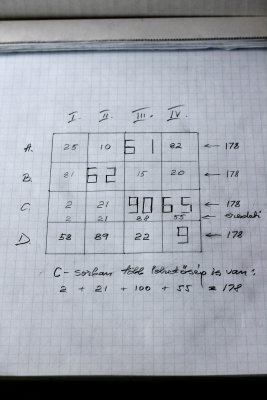 I. II. III. IV.
A. 25 10 61 82 ← 178
B. 81 62 15 20 ← 178
C. 2 21 90 65 ← 178
2 21 55 ← eredeti
D. 58 89 22 9 ← 178
C- sorban több lehetőség is van:
2 + 21 + 100 + 55 = 178